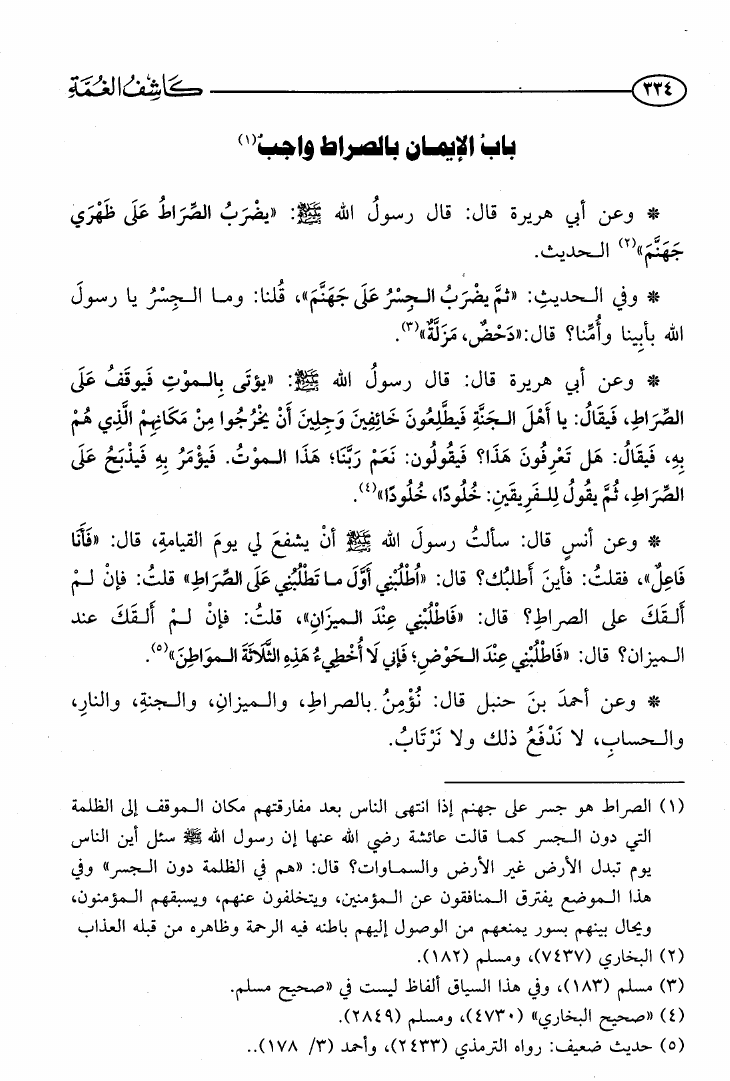 ٣٣٤ كَاشِفُ الغُمَّة
بابُ الإيمان بالصراط واجبٌ(١)
* وعن أبي هريرة قال: قال رسولُ الله ﷺ: «يضْرَبُ الصِّرَاطُ عَلَى ظَهْرَي
جَهَنَّمَ»(٢) الحديث.
* وفي الحديثِ: «ثمَّ يضْرَبُ الجِسْرُ عَلَى جَهَنَّمَ»، قُلنا: وما الجِسْرُ يا رسولَ
الله بأبينا وأُمِّنا؟ قال:«دَحْضٌ، مَزَلَّةٌ»(٣).
* وعن أبي هريرة قال: قال رسولُ الله ﷺ: «يؤتَى بِالموْتِ فَيوقَفُ عَلَى
الصِّرَاطِ، فَيقَالُ: يا أَهْلَ الجَنَّةِ فَيطَّلِعُونَ خَائِفِينَ وَجِلِينَ أَنْ يخْرُجُوا مِنْ مَكَانِهِمْ الَّذِي هُمْ
بِهِ، فَيقَالُ: هَل تَعْرِفُونَ هَذَا؟ فَيقُولُونَ: نَعَمْ رَبَّنَا؛ هَذَا الموْتُ. فَيؤْمَرُ بِهِ فَيذْبَحُ عَلَى
الصِّرَاطِ، ثُمَّ يقُولُ لِلفَرِيقَينِ: خُلُودًا، خُلُودًا»(٤).
* وعن أنسٍ قال: سألتُ رسولَ الله ﷺ أنْ يشفعَ لي يومَ القيامةِ، قال: «فَأَنَا
فَاعِلٌ»، فقلتُ: فأينَ أَطلبُك؟ قال: «اُطْلُبْنِي أَوَّلَ ما تَطْلُبُنِي عَلَى الصِّرَاطِ» قلتُ: فإنْ لمْ
أَلقَكَ على الصراطِ؟ قال: «فَاطْلُبْنِي عِنْدَ الميزَانِ»، قلتُ: فإنْ لمْ أَلقَكَ عند
الميزان؟ قال: «فَاطْلُبْنِي عِنْدَ الحَوْضِ؛ فَإني لَا أُخْطِيءُ هَذِهِ الثَّلَاثَةَ المَوَاطِنَ»(٥).
* وعن أحمدَ بنَ حنبل قال: نُؤْمِنُ بالصراطِ، والميزانِ، والجنةِ، والنارِ،
والحسابِ، لا نَدْفَعُ ذلك ولا نَرْتَابُ.
(١) الصراط هو جسر على جهنم إذا انتهى الناس بعد مفارقتهم مكان الموقف إلى الظلمة
التي دون الجسر كما قالت عائشة رضي الله عنها إن رسول الله ﷺ سئل أين الناس
يوم تبدل الأرض غير الأرض والسماوات؟ قال: «هم في الظلمة دون الجسر» وفي
هذا الموضع يفترق المنافقون عن المؤمنين، ويتخلفون عنهم، ويسبقهم المؤمنون،
ويحال بينهم بسور يمنعهم من الوصول إليهم باطنه فيه الرحمة وظاهره من قبله العذاب
(٢) البخاري (٧٤٣٧)، ومسلم (١٨٢).
(٣) مسلم (١٨٣)، وفي هذا السياق ألفاظ ليست في «صحيح مسلم.
(٤) «صحيح البخاري» (٤٧٣٠)، ومسلم (٢٨٤٩).
(٥) حديث ضعيف: رواه الترمذي (٢٤٣٣)، وأحمد (٣/ ١٧٨)..